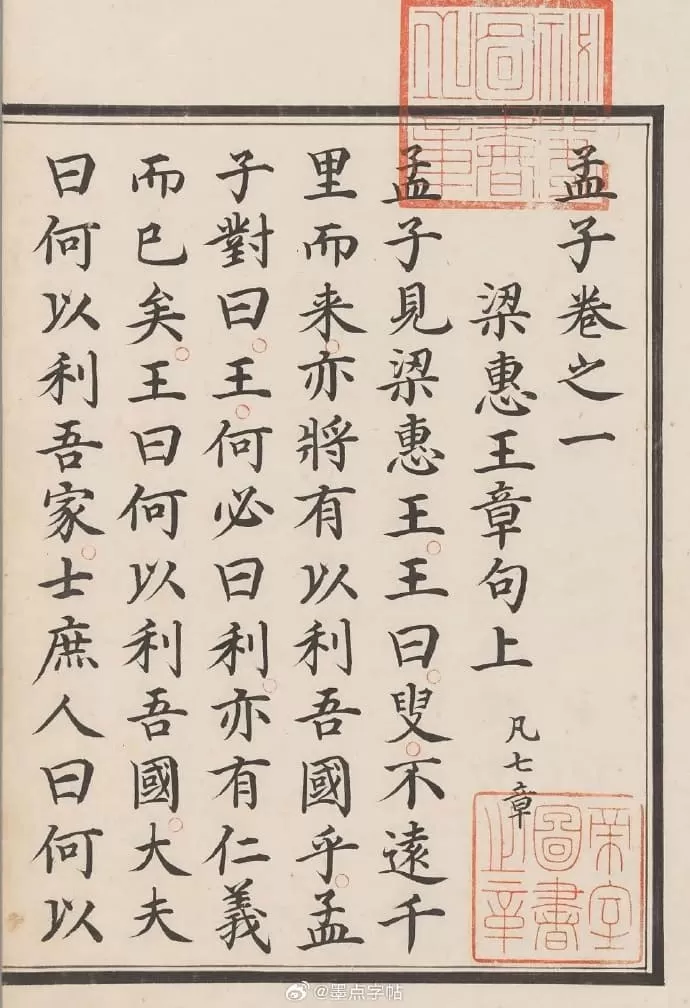 孟子卷之一
梁惠王章句上 凡七章
孟子見梁惠王王曰叟不遠千
里而来亦將有以利吾國乎孟
子對曰王何必曰利亦有仁義
而已矣王曰何以利吾國大夫
曰何以利吾家士庶人曰何以
圖書之章
@墨点字帖